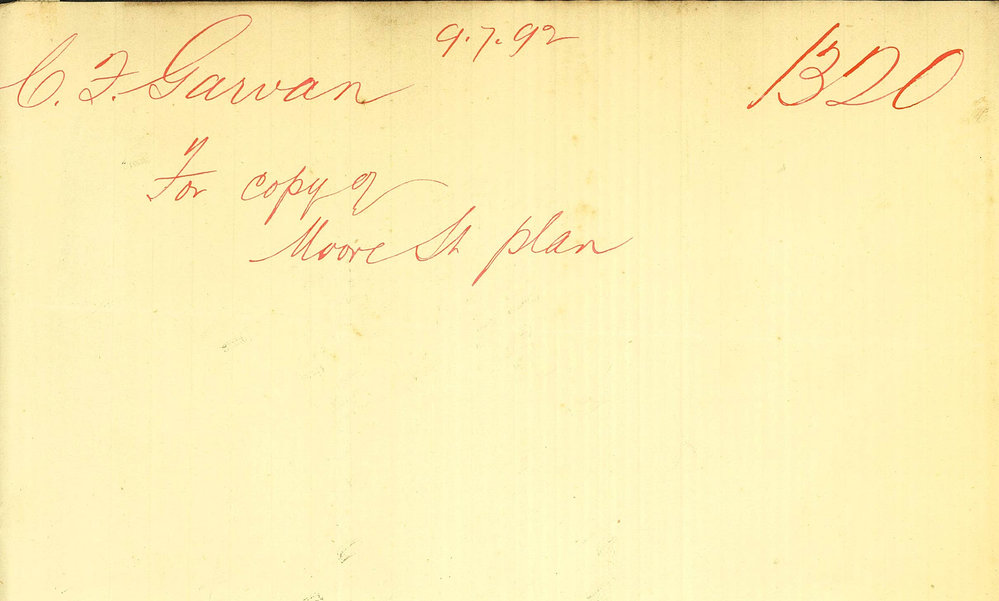 9.7.92
C. F. Garvan 1320
For copy of
Moore St plan